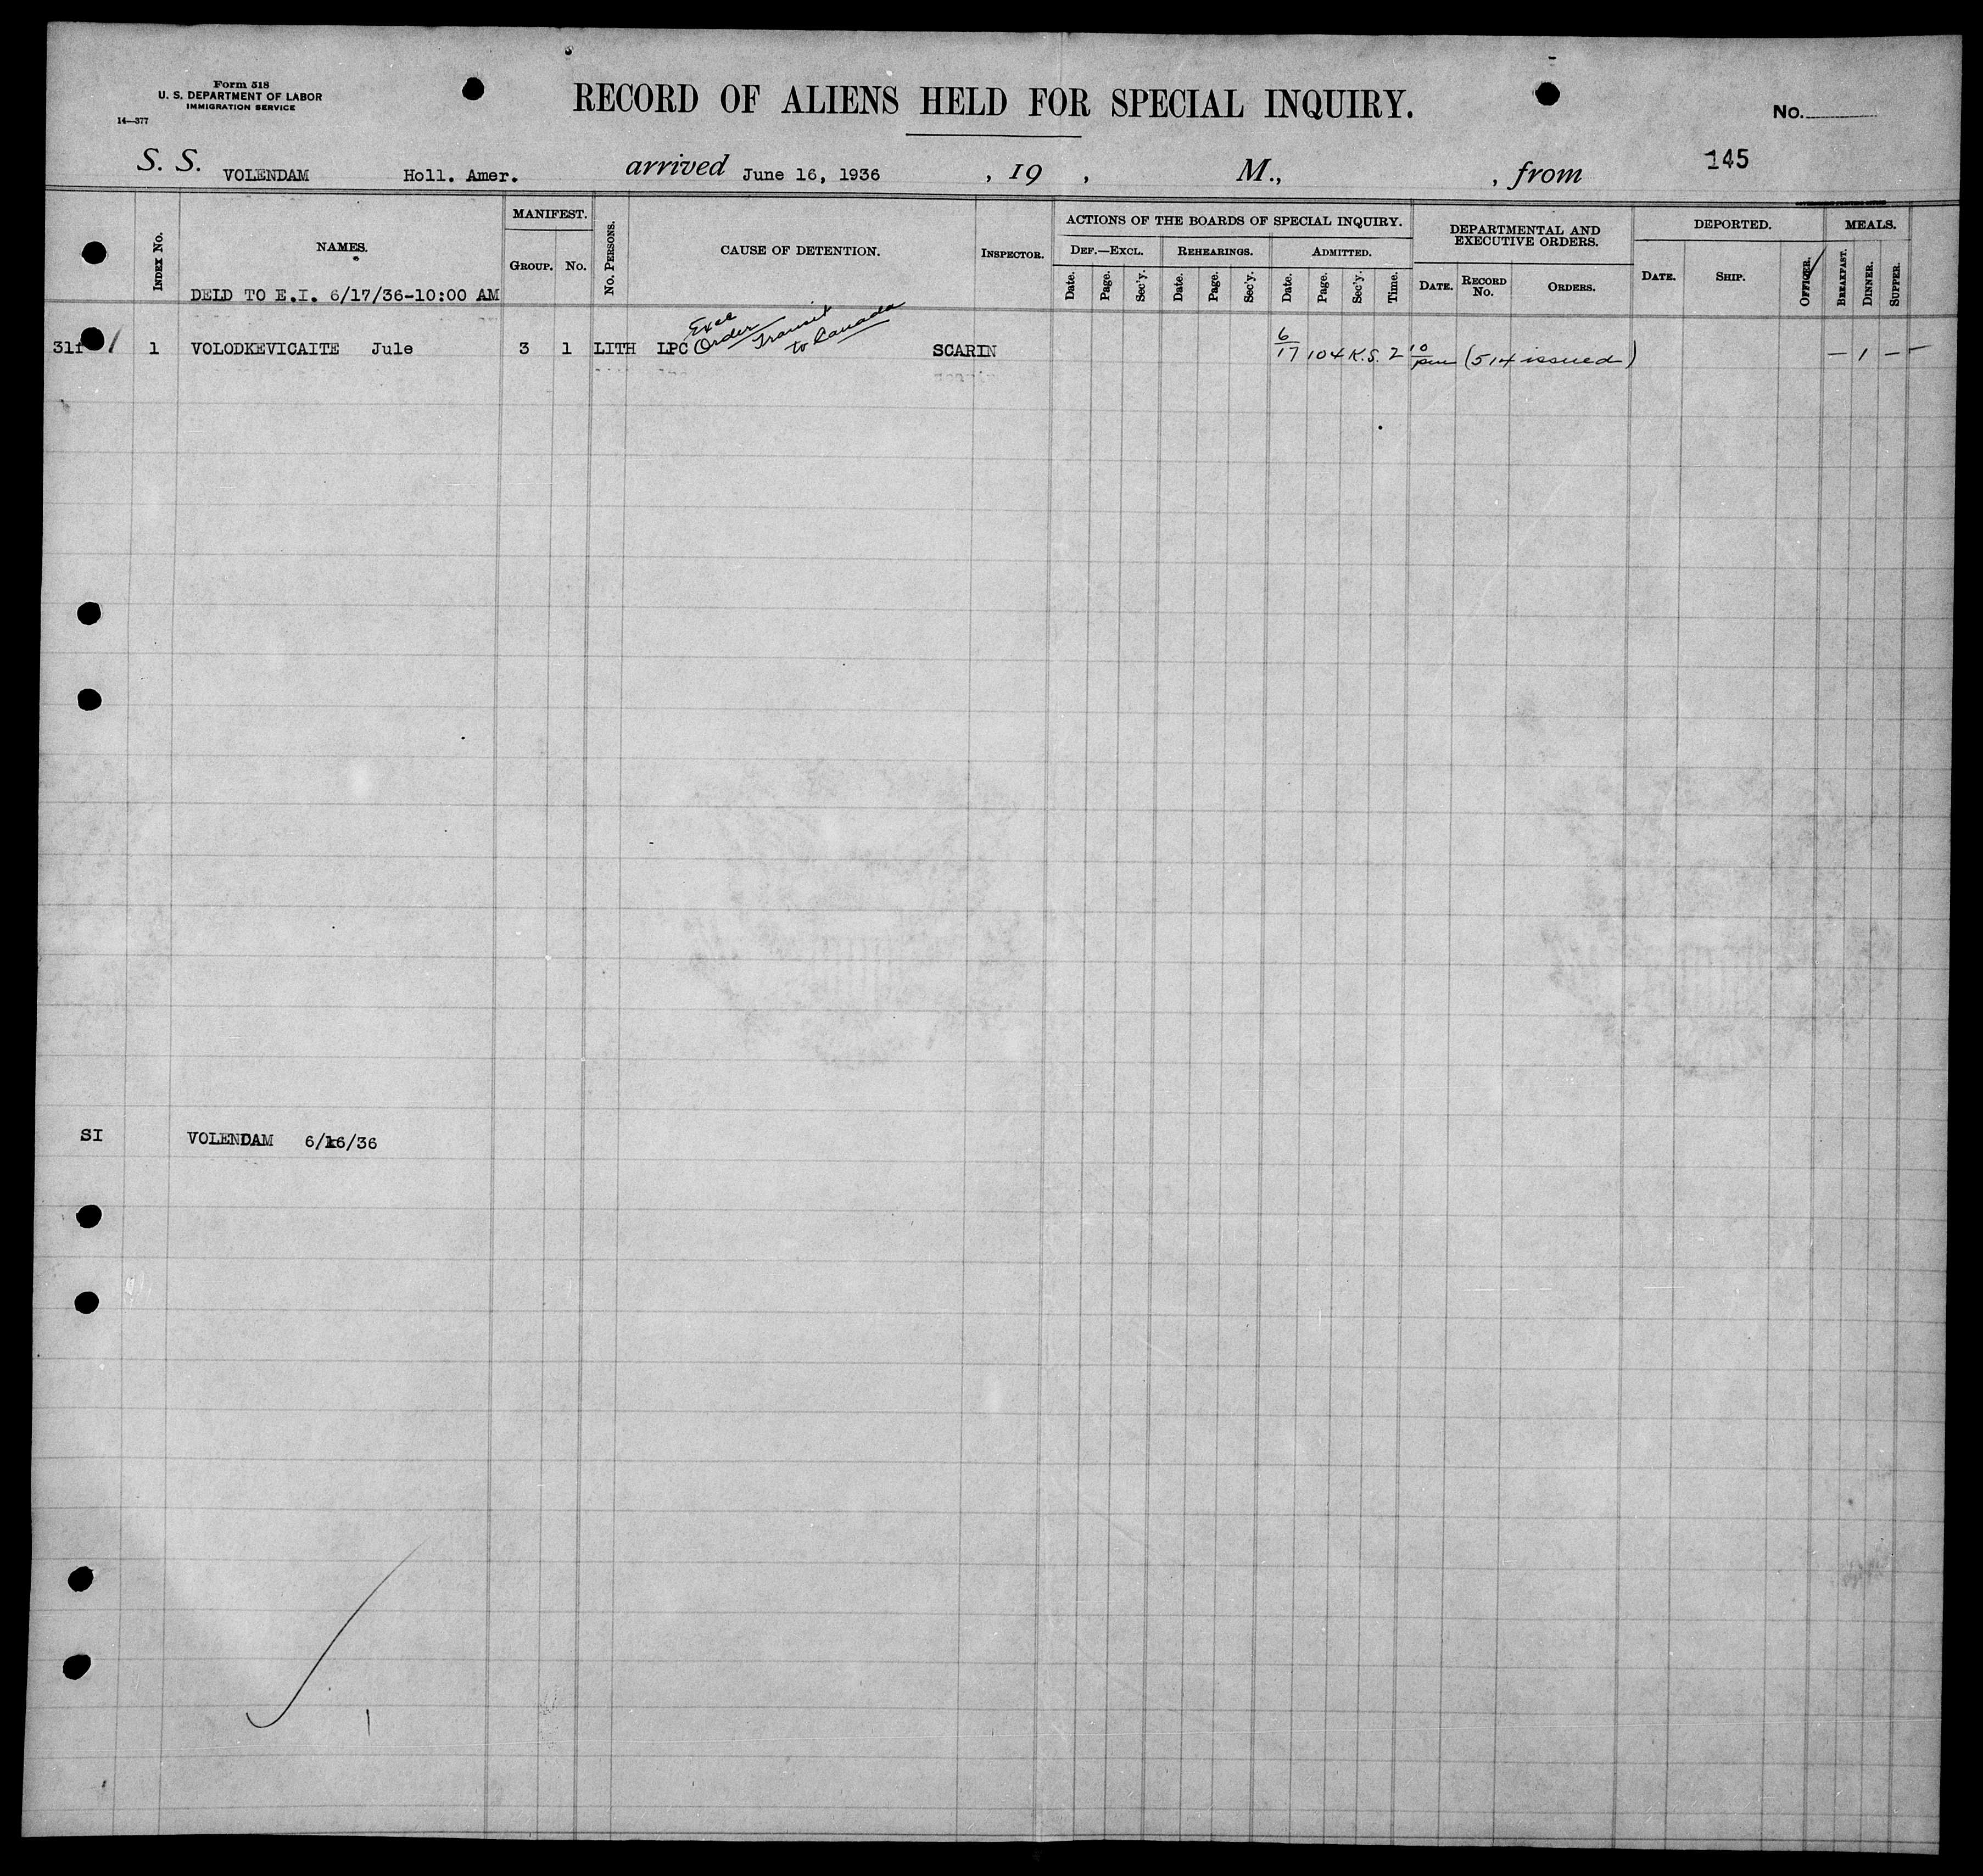 Form 518
U. S. DEPARTMENT OF LABOR
IMMIGRATION SERVICE
14—377
RECORD OF ALIENS HELD FOR SPECIAL INQUIRY.
No.
145
S. S. VOLENDAM Holl. Amer. arrived June 16, 1936 , 19 , M., , from
INDEX No. NAMES. MANIFEST. GROUP. No. No. PERSONS. CAUSE OF DETENTION. INSPECTOR.
ACTIONS OF THE BOARDS OF SPECIAL INQUIRY.
DEF.—EXCL. REHEARINGS. ADMITTED.
Date. Page. Sec'y. Date. Page. Sec'y. Date. Page. Sec'y. Time.
DEPARTMENTAL AND EXECUTIVE ORDERS.
DATE. RECORD No. ORDERS.
DEPORTED.
DATE. SHIP. OFFICER.
MEALS.
BREAKFAST. DINNER. SUPPER.
DELD TO E.I. 6/17/36-10:00 AM
Exec Order Transit to Canada
1 VOLODKEVICAITE Jule 3 1 LITH LPC SCARIN 6/17 104 K.S. 2 10 pm (514 issued) — 1 —
SI VOLENDAM 6/16/36